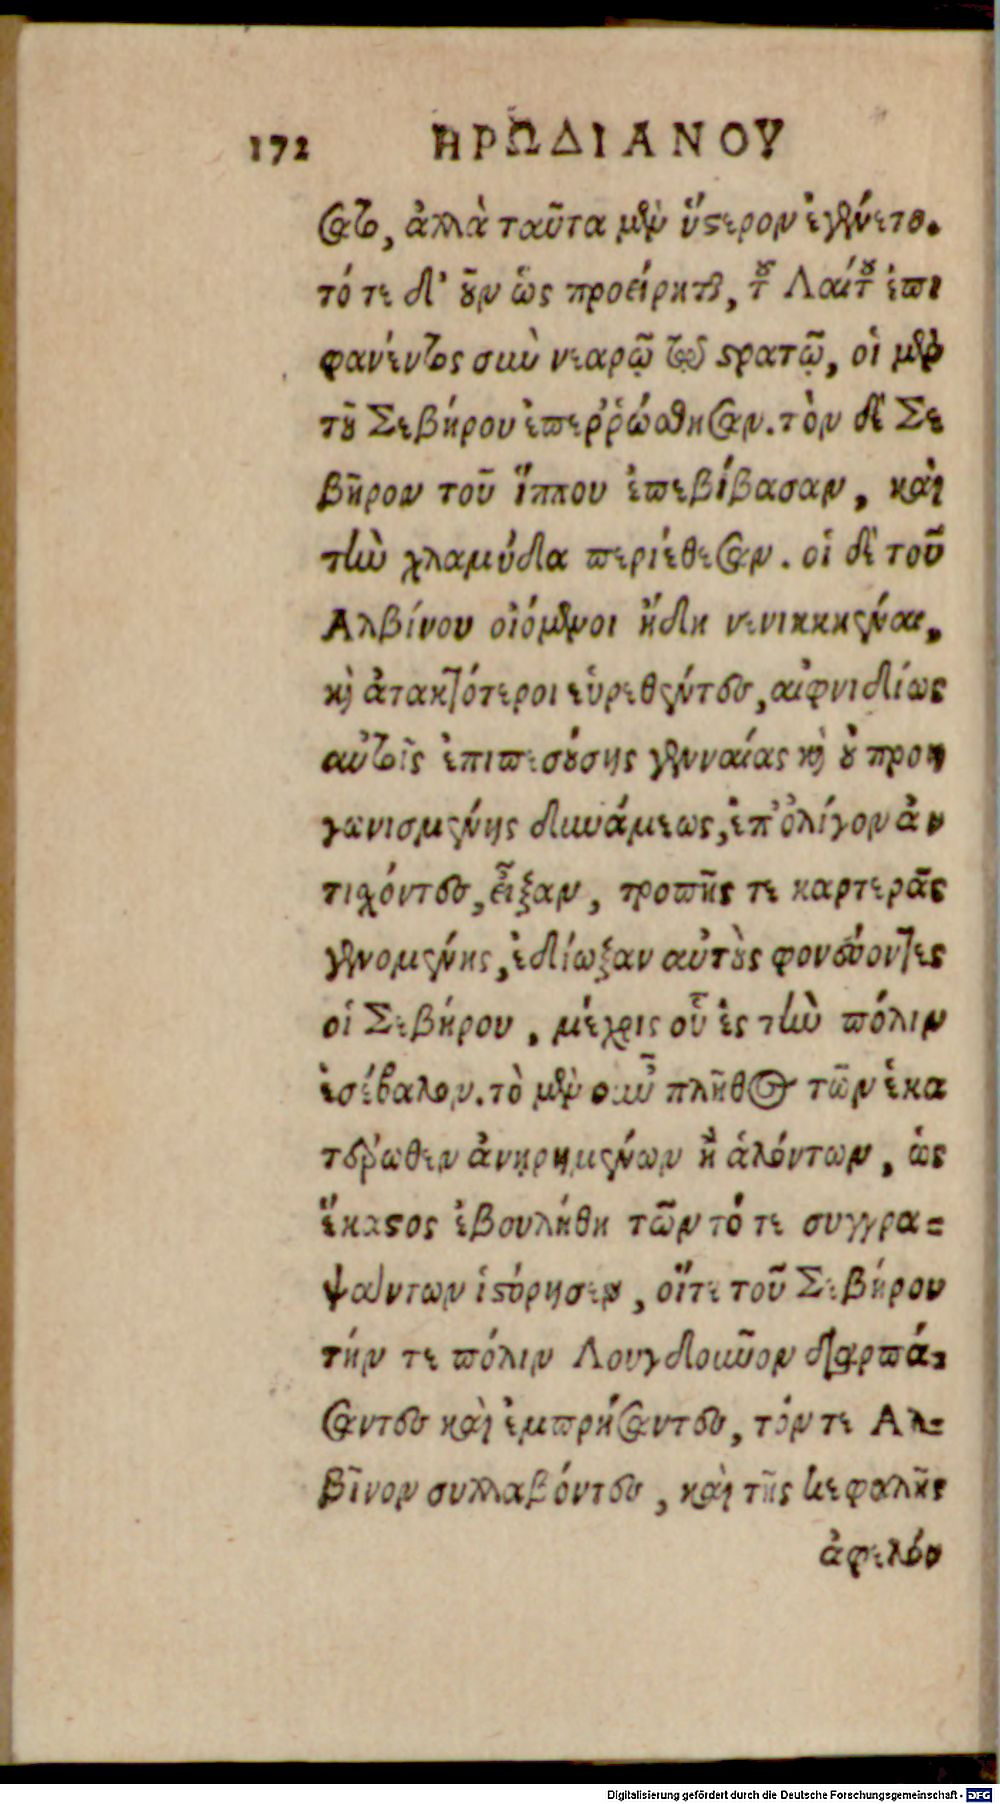 172 ΗΡΩΔΙΑΝΟΥ
σατο, ἀλλὰ ταῦτα μὲν ὕστερον ἐγένετο.
τό τε δ' οὖν ὡς προείρηται, τοῦ Λαίτου ἐπι
φανέντος σὺν νεαρῷ τῷ στρατῷ, οἱ μὲν
τοῦ Σεβήρου ἐπεῤῥώσθησαν. τὸν δὲ Σε
βῆρον τοῦ ἵππου ἐπεβίβασαν, καὶ
τὴν χλαμύδα περιέθεσαν. οἱ δὲ τοῦ
Αλβίνου οἰόμενοι ἤδη νενικηκέναι,
καὶ ἀτακτότεροι εὑρεθέντες, αἰφνιδίως
αὐτοῖς ἐπιπεσούσης γενναίας καὶ οὐ προη
γωνισμένης δυνάμεως, ἐπ' ὀλίγον ἀν
τιχόντες, εἶξαν, τροπῆς τε καρτερᾶς
γενομένης, ἐδίωξαν αὐτοὺς φονεύοντες
οἱ Σεβήρου, μέχρις οὗ ἐς τὴν πόλιν
ἐσέβαλον. τὸ μὲν οὖν πλῆθος τῶν ἑκα
τέρωθεν ἀνῃρημένων ἢ ἁλόντων, ὡς
ἕκαστος ἐβουλήθη τῶν τό τε συγγρα=
ψάντων ἱστόρησεν, οἵτε τοῦ Σεβήρου
τήν τε πόλιν Λουγδουῦνον διαρπά=
σαντες καὶ ἐμπρήσαντες, τόν τε Αλ=
βῖνον συλλαβόντες, καὶ τῆς κεφαλῆς
ἀφελόν
Digitalisierung gefördert durch die Deutsche Forschungsgemeinschaft - DFG